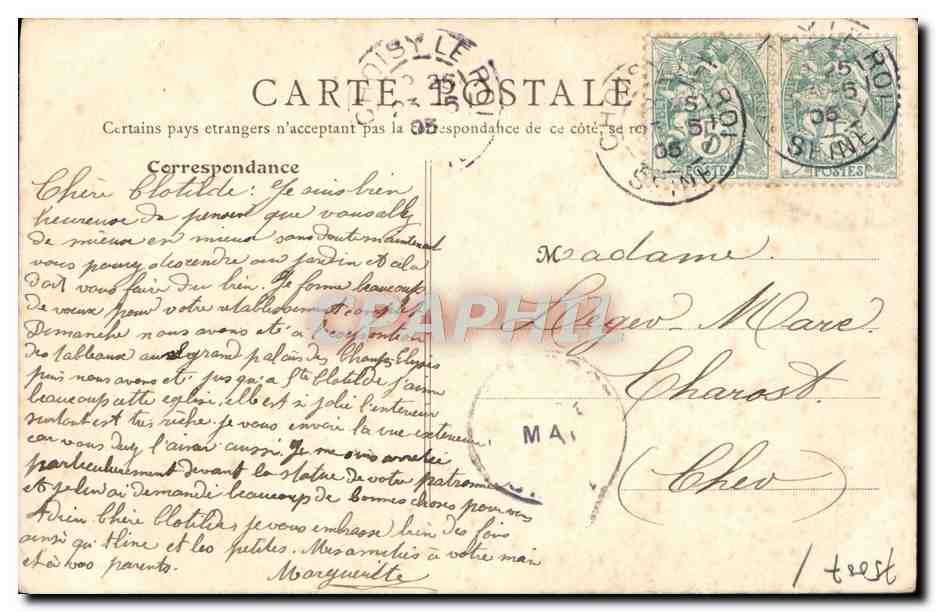 CARTE POSTALE
Certains pays etrangers n'acceptant pas la correspondance de ce côté, se
Correspondance
Chère Clotilde. Je suis bien
heureuse de penser que vous allez
de mieux en mieux sans doute maintenant
vous pouvez descendre au jardin et cela
doit vous faire du bien. Je forme beaucoup
de vœux pour votre rétablissement complet
Dimanche nous avons été à l'exposition
des tableaux au grand palais des Champs Elysées
puis nous avons été jusqu'à Ste Clotilde j'aime
beaucoup cette église, elle est si jolie l'interieur
surtout est très riche. je vous envoie la vue exterieure
car vous devez l'aimer aussi. Je me suis arretée
particulierement devant la statue de votre patronne
et je lui ai demandé beaucoup de bonnes choses pour vous
Adieu Chère Clotilde je vous embrasse bien des fois
ainsi qu'Aline et les petites. Mes amitiés à votre mari
et à vos parents.
Marguerite
Madame
Leger-Marc.
Charost.
(Cher)
CHOISY LE ROI
25
05
CHOISY LE ROI
SEINE
05
5
POSTES
LE ROI
SEINE
05
POSTES
MAI
CPAPHIL